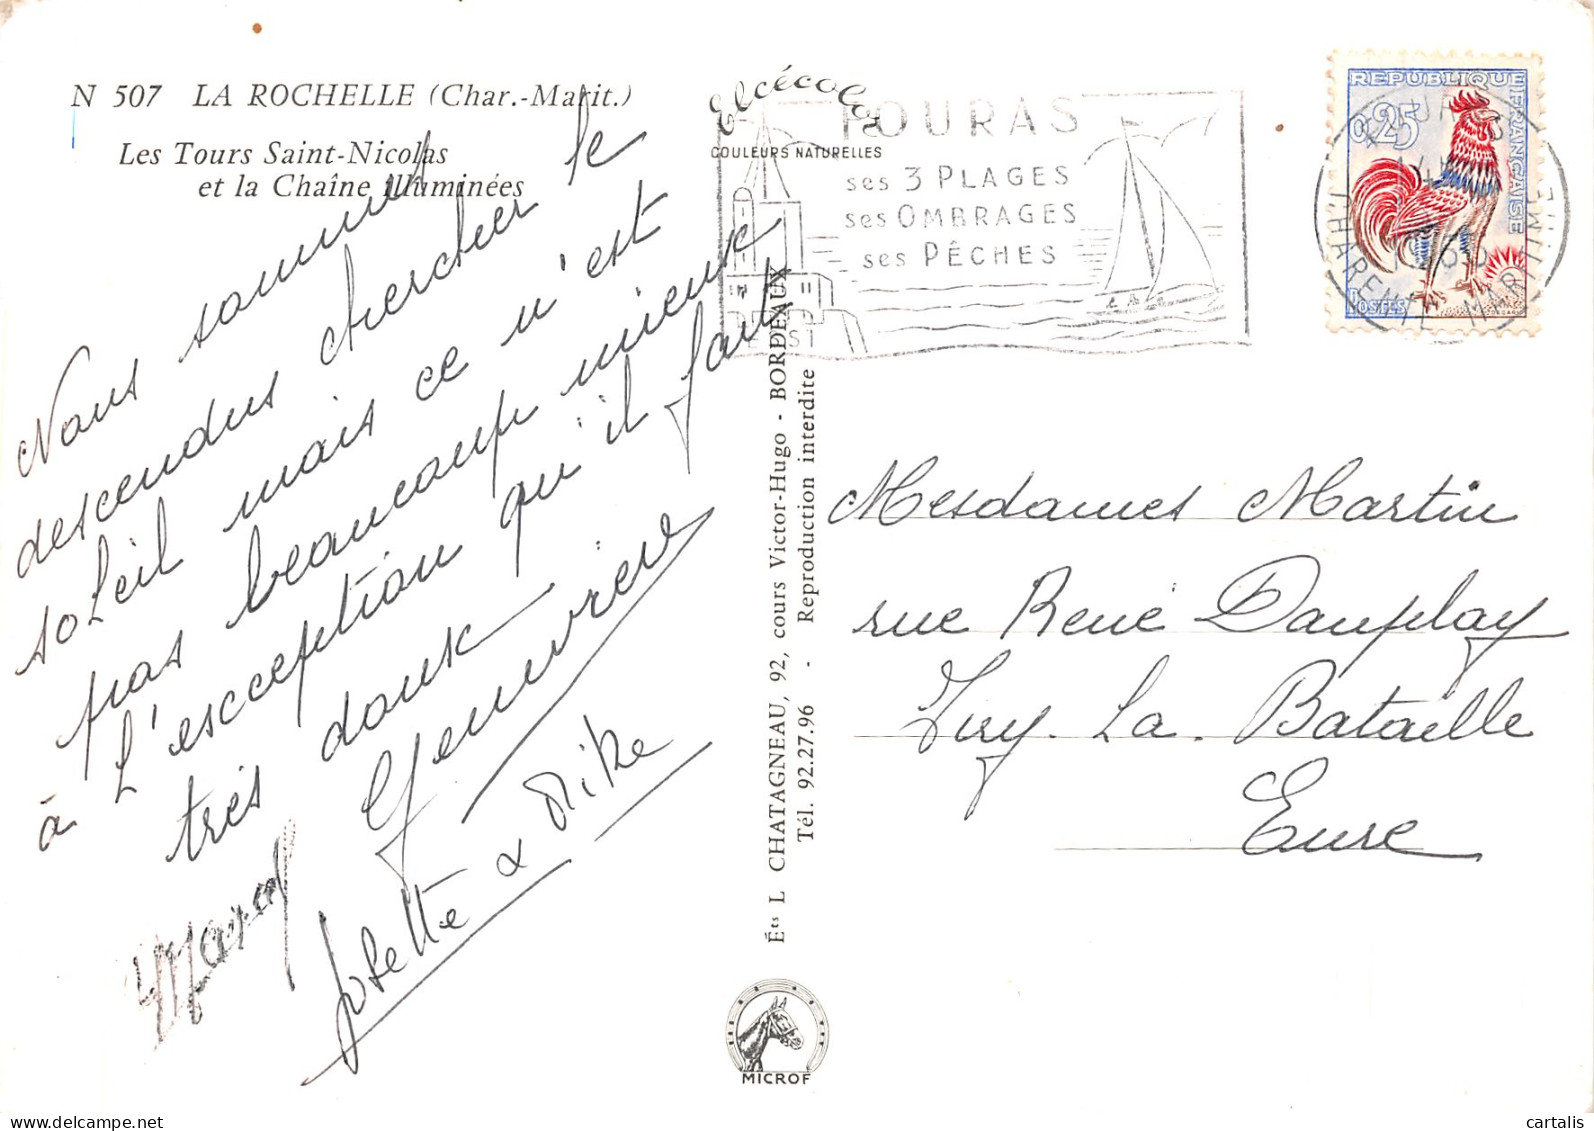 N 507 LA ROCHELLE (Char.-Marit.)
Les Tours Saint-Nicolas
et la Chaîne illuminées
Elcécolor
COULEURS NATURELLES
FOURAS
ses 3 PLAGES
ses OMBRAGES
ses PÊCHES
REPUBLIQUE FRANÇAISE
0,25
POSTES
CHARENTE MARITIME
Nous sommes
descendus chercher le
soleil mais ce n'est
pas beaucoup mieux
à l'exception qu'il fait
très doux
Genevrière
Marcel
Josette & Mike
Éts L CHATAGNEAU, 92, cours Victor-Hugo - BORDEAUX
Tél. 92.27.96 - Reproduction interdite
Mesdames Martin
rue René Dauplay
Ivry. La. Bataille
Eure
MICROF
cartalis
delcampe.net